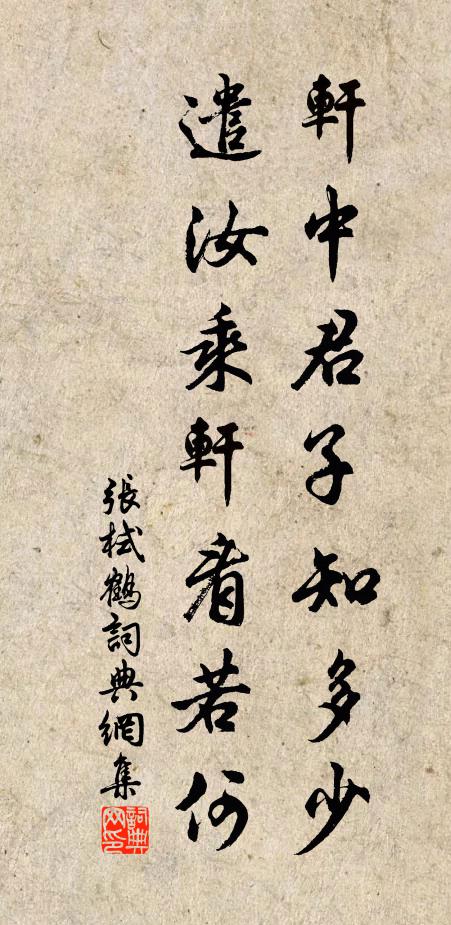 軒中君子知多少
遣汝乘軒看若何
張栻鶴詞典網集
詞典網印